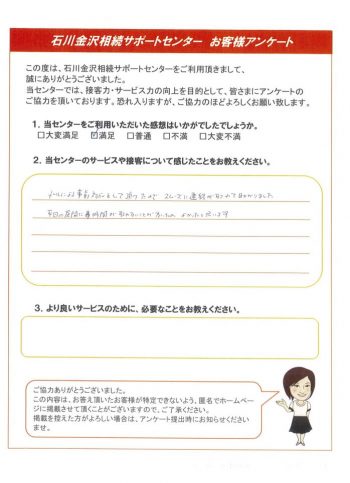 石川金沢相続サポートセンター　お客様アンケート
この度は、石川金沢相続サポートセンターをご利用頂きまして、
誠にありがとうございました。
当センターでは、接客力・サービス力の向上を目的として、皆さまにアンケートの
ご協力を頂いております。恐れ入りますが、ご協力のほどよろしくお願い致します。
1．当センターをご利用いただいた感想はいかがでしたでしょうか。
□大変満足　☑満足　□普通　□不満　□大変不満
2．当センターのサービスや接客について感じたことをお教えください。
メールによる事前
スムーズに連絡が
平日の昼間に
よかったと思います
3．より良いサービスのために、必要なことをお教えください。
ご協力ありがとうございました。
この内容は、お答え頂いたお客様が特定できないよう、匿名でホームペー
ジに掲載させて頂くことがございますので、ご了承ください。
掲載を控えた方がよろしい場合は、アンケート提出時にお知らせください
ませ。